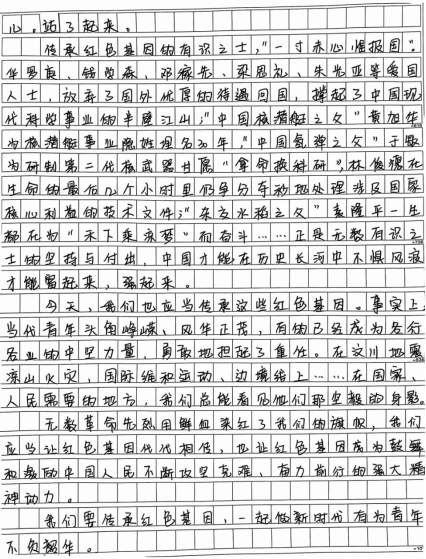 心。站了起来。
传承红色基因的有识之士，“一寸赤心惟报国”。
华罗庚、钱学森、邓稼先、梁思礼、朱光亚等爱国
人士，放弃了国外优厚的待遇回国，撑起了中国现
代科学事业的半壁江山；“中国核潜艇之父”黄旭华
为核潜艇事业隐姓埋名30年，“中国氢弹之父”于敏
为研制第二代核武器甘愿“拿命搞科研”，林俊德在
生命的最后几个小时里仍争分夺秒地处理涉及国家
核心利益的技术文件；“杂交水稻之父”袁隆平一生
都在为“禾下乘凉梦”而奋斗……正是无数有识之
士的坚持与付出，中国才能在历史长河中不惧风浪
才能富起来，强起来。
今天，我们也应当传承这些红色基因。事实上，
当代青年头角峥嵘、风华正茂，有的已经成为各行
各业的中坚力量，勇敢地担起了重任。在汶川地震
凉山火灾，国际维和运动、边境线上……在国家、
人民需要的地方，我们总能看见他们那坚毅的身影。
无数革命先烈用鲜血染红了我们的旗帜，我们
应当让红色基因代代相传，也让红色基因成为鼓舞
和激励中国人民不断攻坚克难、奋力前行的强大精
神动力。
我们要传承红色基因，一起做新时代有为青年
不负韶华。